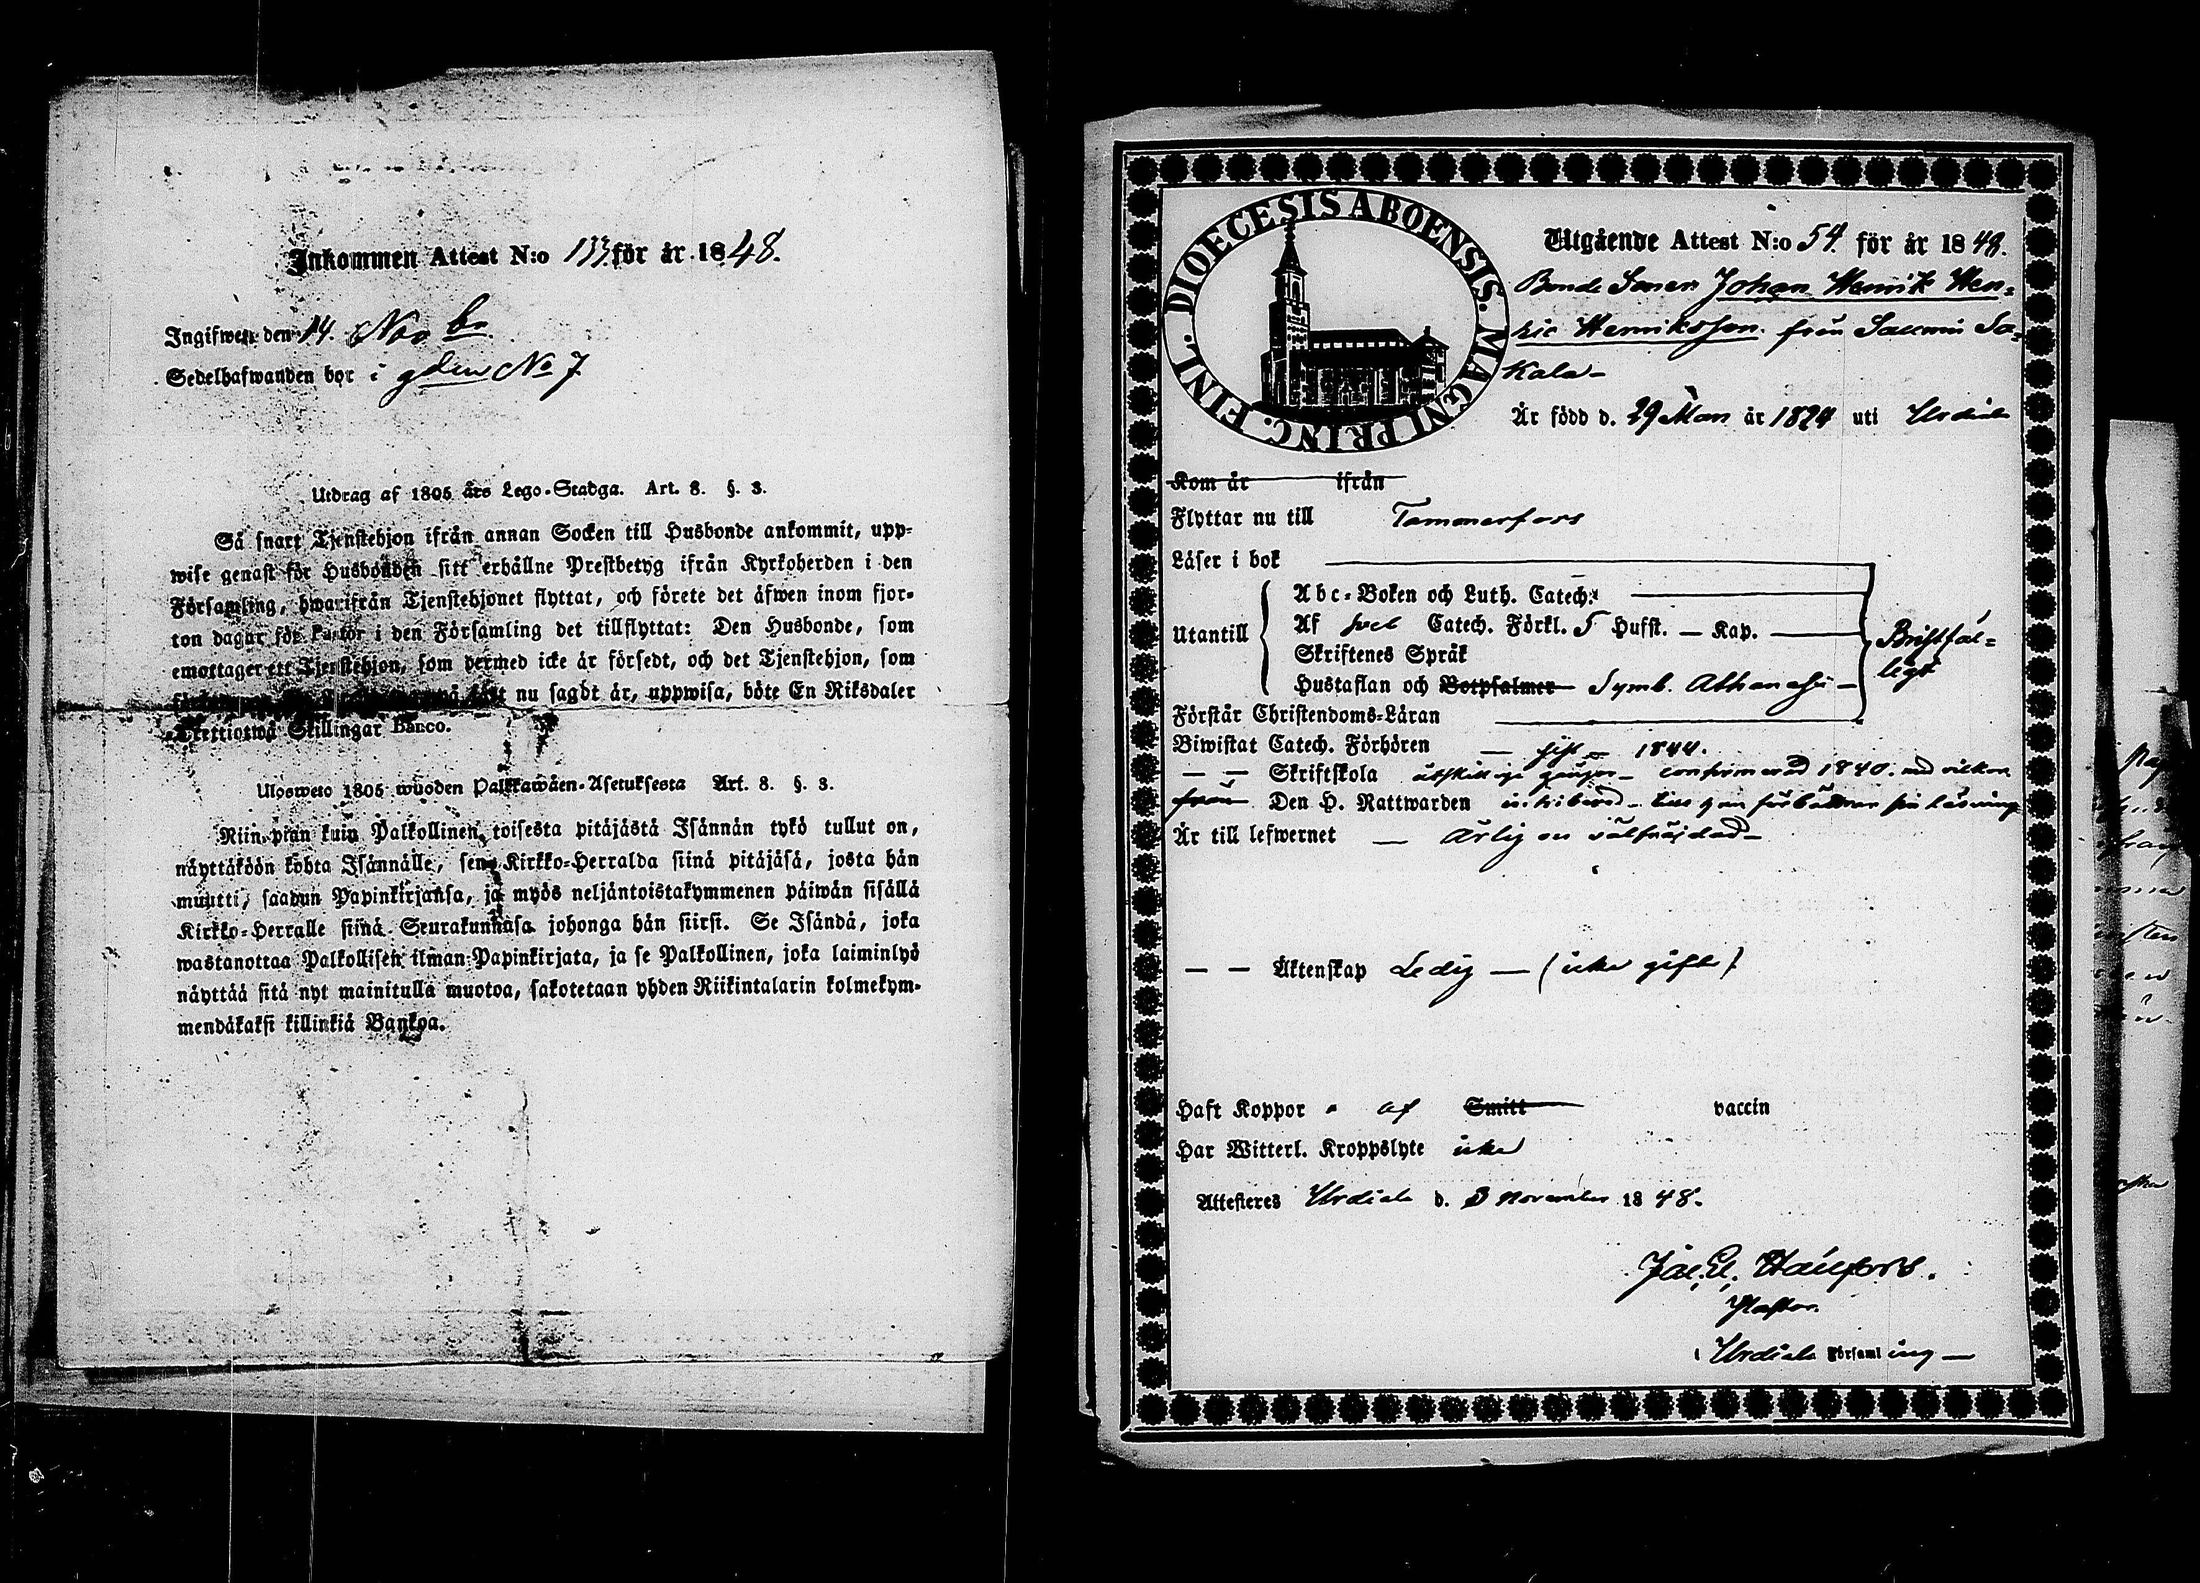 Inkommen Attest N:o 133 för år 1848.
Ingifwen den 14. Novbr
Sedelhafwanden bor i gden No 7
Utdrag af 1805 års Lego-Stadga. Art. 8. §. 3.
Så snart Tjenstehjon ifrån annan Socken till Husbonde ankommit, upp-
wise genast för Husbonden sitt erhållne Prestbetyg ifrån Kyrkoherden i den
Församling, hwarifrån Tjenstehjonet flyttat, och förete det äfwen inom fjor-
ton dagar för Pastor i den Församling det tillflyttat: Den Husbonde, som
emottager ett Tjenstehjon, som dermed icke är försedt, och det Tjenstehjon, som
nu sagdt är, uppwisa, böte En Riksdaler
Trettiotwå Skillingar Banco.
Ulosweto 1805 wuoden Palkkawäen-Asetuksesta Art. 8. §. 3.
Niin pian kuin Palkollinen toisesta pitäjästä Isännän tykö tullut on,
näyttäköön kohta Isännälle, sen Kirkko-Herralda siinä pitäjäsä, josta hän
muutti, saadun Papinkirjansa, ja myös neljäntoistakymmenen päiwän sisällä
Kirkko-Herralle siinä Seurakunnasa johonga hän siirsi. Se Isändä, joka
wastanottaa Palkollisen ilman Papinkirjata, ja se Palkollinen, joka laiminlyö
näyttää sitä nyt mainitulla muotoa, sakotetaan yhden Riikintalarin kolmekym-
mendäkaksi killinkiä Bankoa.
DIOECESIS ABOENSIS. MAGNI PRINC. FINL.
Utgående Attest N:o 54 för år 1848.
Bonde Sonen Johan Henrik Hen-
ric Henriksson från Saloumin So-
kala
Är född d. 29 Mars år 1824 uti Urdiala
Kom år ifrån
Flyttar nu till Tammerfors
Läser i bok
Abc-Boken och Luth. Catech.
Utantill Af Catech. Förkl. 5 Hufst. — Kap. — Bristfäl-
Skriftenes Språk
Hustaflan och Botpsalmer Symb. Athanasii — ligt
Förstår Christendoms-Läran
Biwistat Catech. Förhören — sist — 1844.
— — Skriftskola åtskillige gånger — confirmerad 1840. med vilkor
från Den H. Nattwarden
Är till lefwernet — Ärlig och välfräjdad —
— — Äktenskap Ledig — (icke gift)
Haft Koppor af Smitt vaccin
Har Witterl. Kroppslyte icke
Attesteres Urdiala d. 3 November 1848.
Pastor.
i Urdiala Församling —